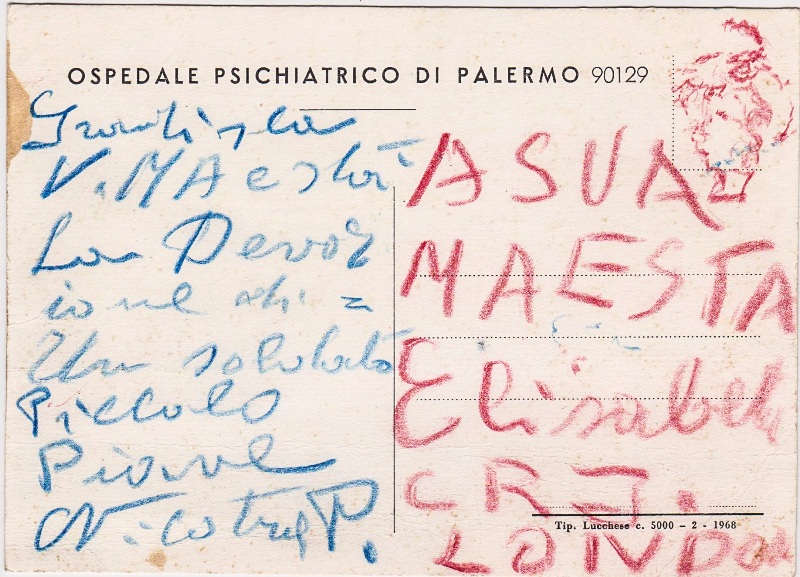 OSPEDALE PSICHIATRICO DI PALERMO 90129
V. MAestà
La Devoz
ione di =
Un soldato
Piccolo
Piave
Nicotra P.
A SUA
MAESTA
Elisabeta
LONDON
Tip. Lucchese c. 5000 - 2 - 1968